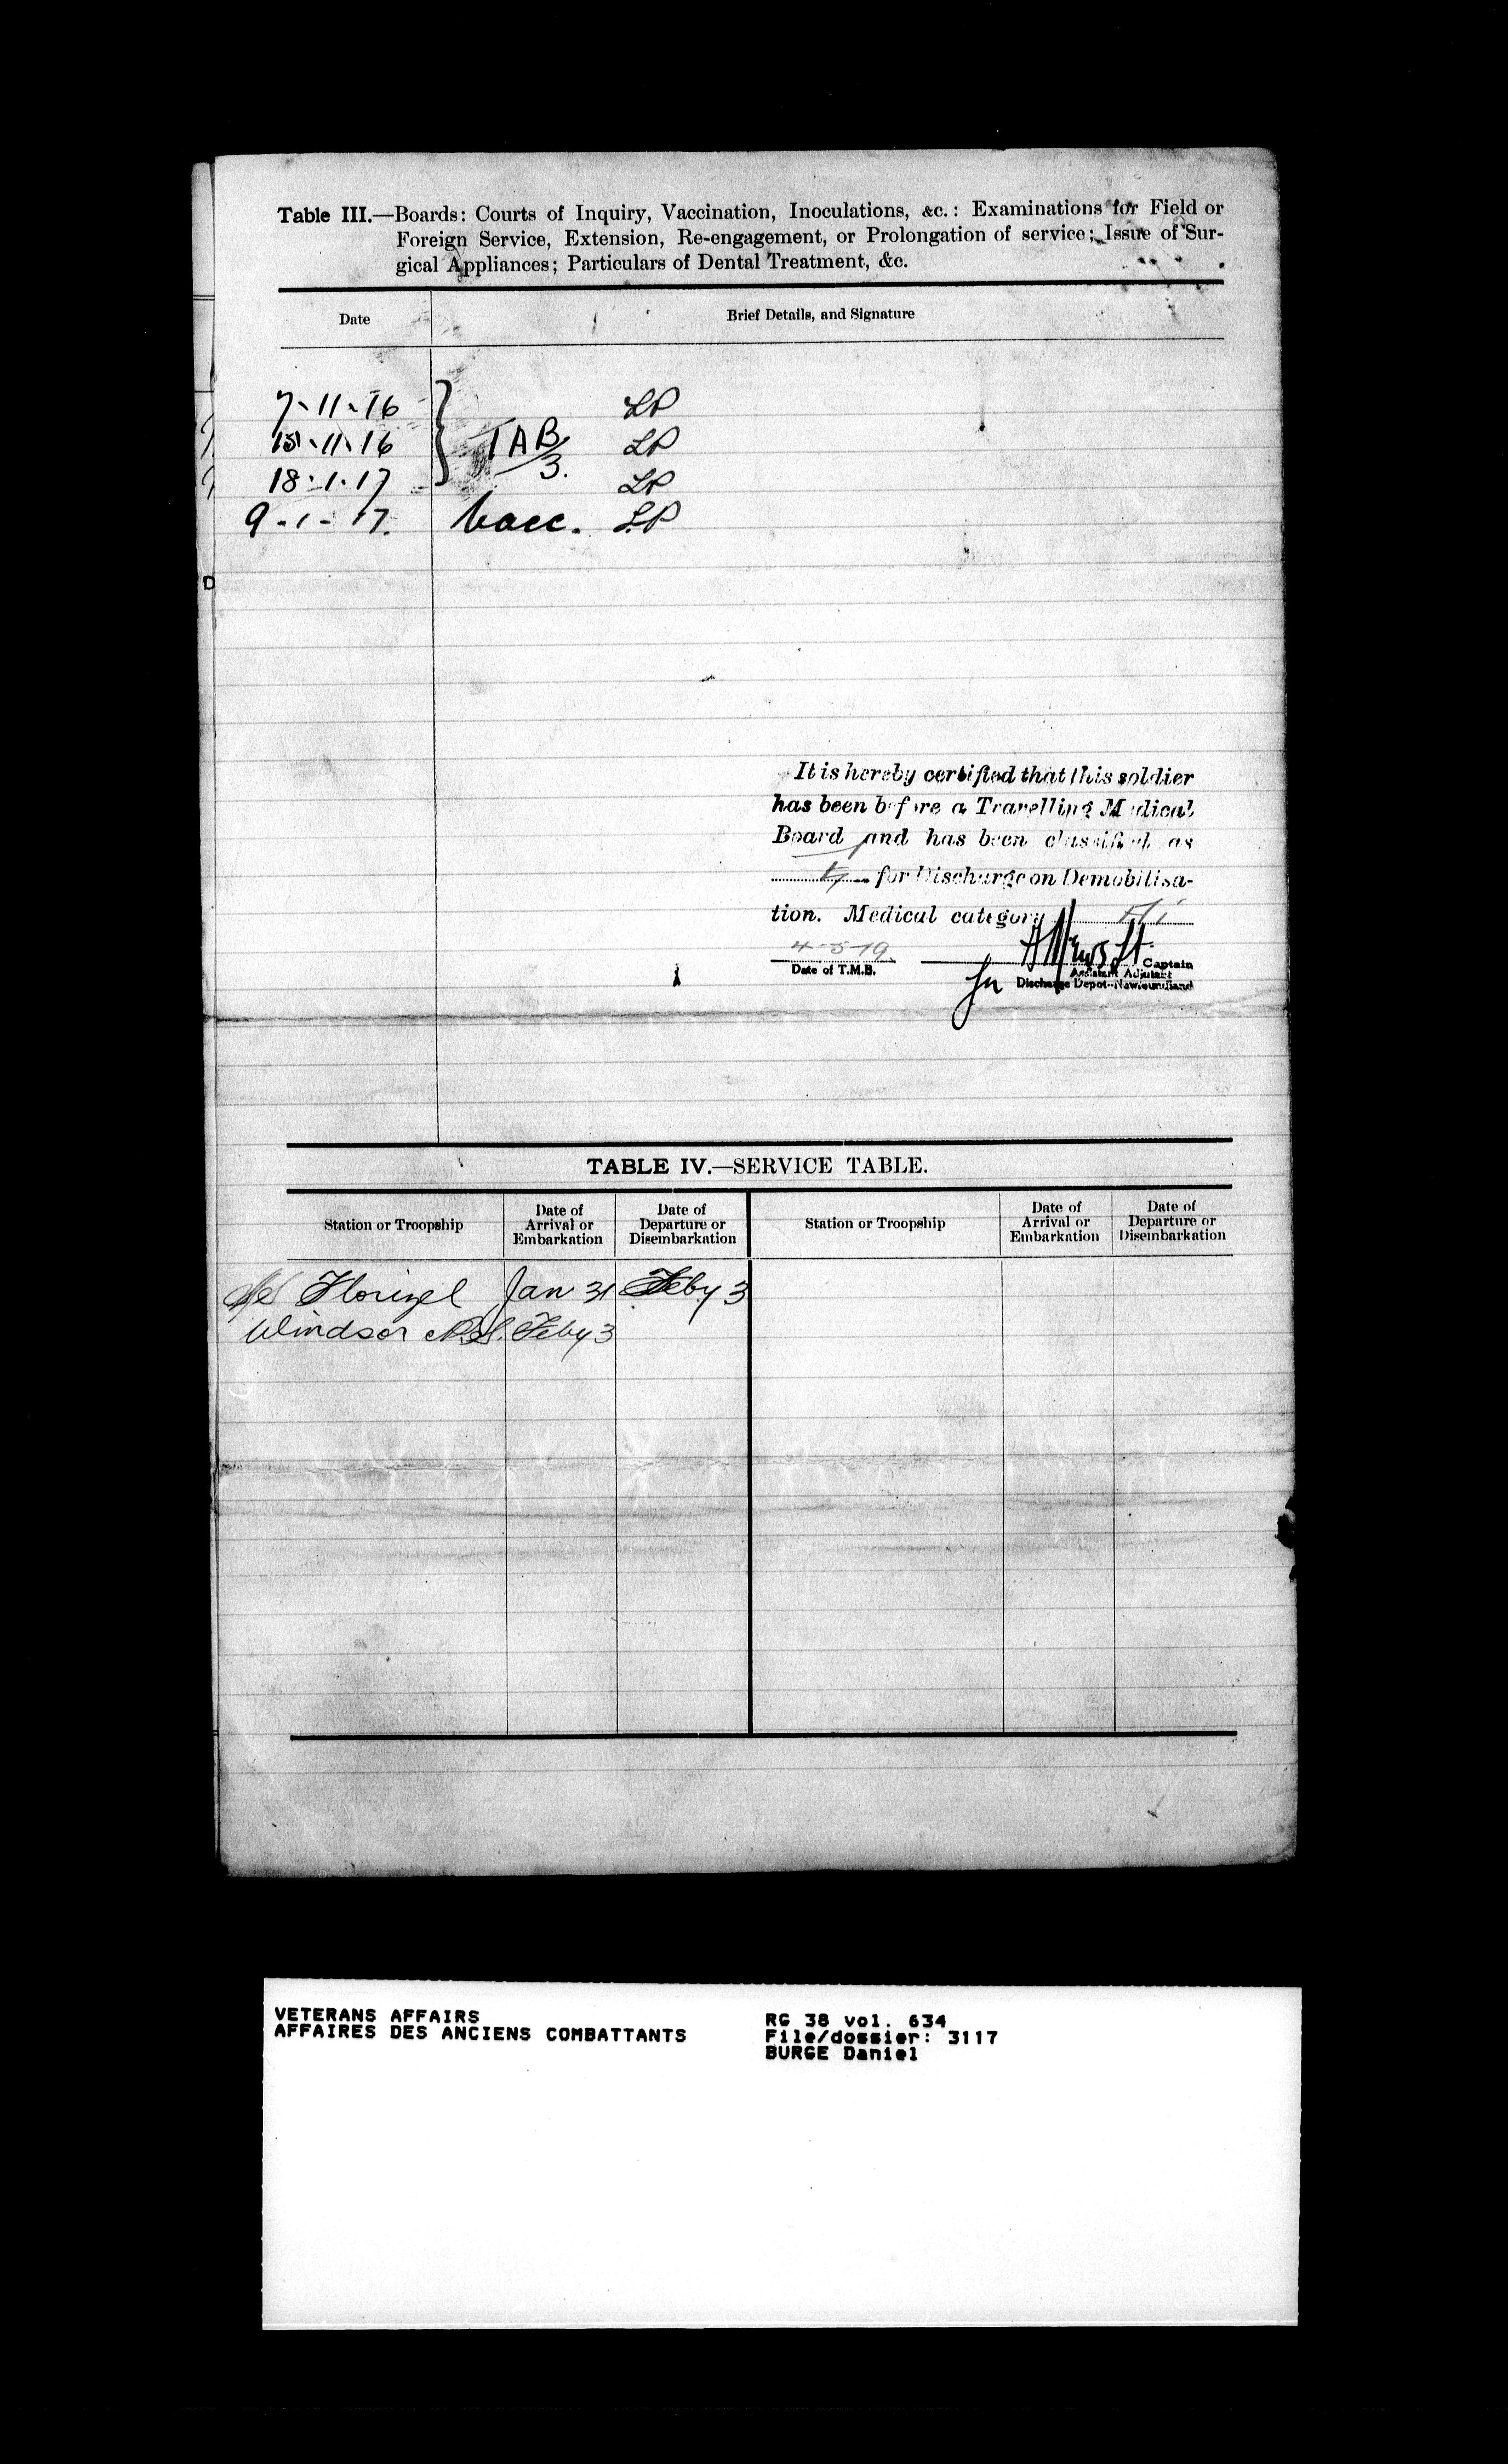 Table III.—Boards: Courts of Inquiry, Vaccination, Inoculations, &c.: Examinations for Field or
Foreign Service, Extension, Re-engagement, or Prolongation of service; Issue of Sur-
gical Appliances; Particulars of Dental Treatment, &c.
Date
Brief Details, and Signature
7-11-16 LP
15-11-16 TAB/3. LP
18-1-17 LP
9-1-17. Vacc. LP
It is hereby certified that this soldier
has been before a Travelling Medical
Board and has been classified as
for Discharge on Demobilisa-
tion. Medical category
4-5-19.
Date of T.M.B.
Captain
Assistant Adjutant
for Discharge Depot--Newfoundland
TABLE IV.—SERVICE TABLE.
Station or Troopship Date of Arrival or Embarkation Date of Departure or Disembarkation Station or Troopship Date of Arrival or Embarkation Date of Departure or Disembarkation
Florizel Jan 31 Feby 3
Windsor N.S. Feby 3
VETERANS AFFAIRS
AFFAIRES DES ANCIENS COMBATTANTS
RG 38 vol. 634
File/dossier: 3117
BURGE Daniel